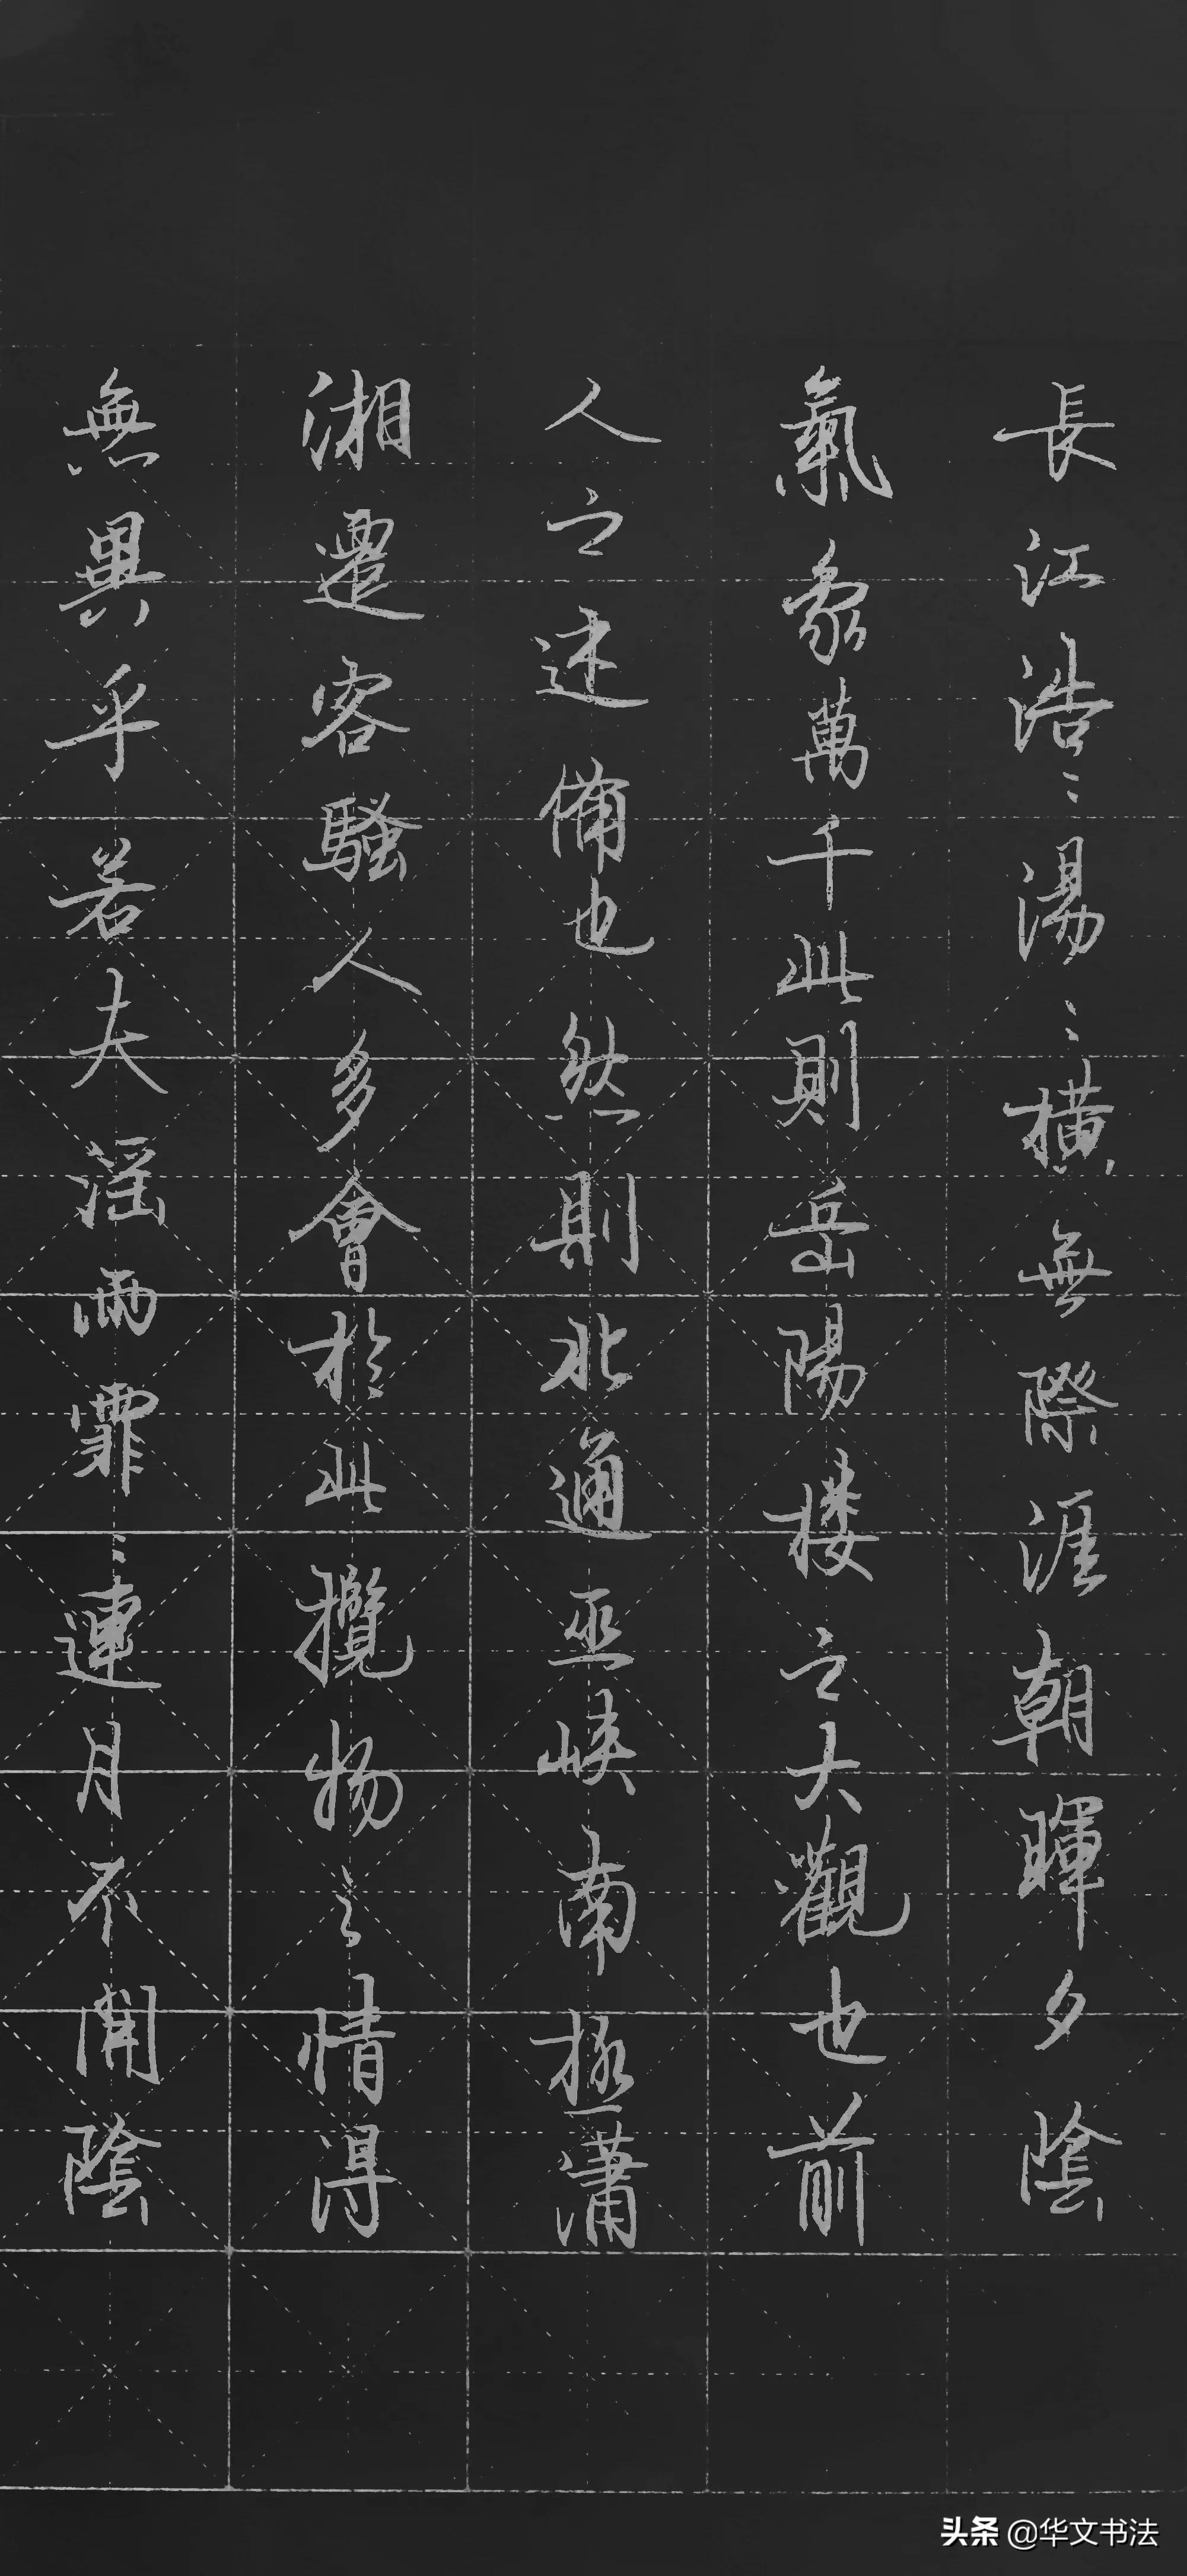 長江浩〻湯〻橫無際涯朝暉夕陰
氣象萬千此則岳陽楼之大觀也前
人之述備也然則北通巫峽南極瀟
湘遷客騷人多會於此攬物之情得
無異乎若夫淫雨霏〻連月不開陰
头条 @华文书法